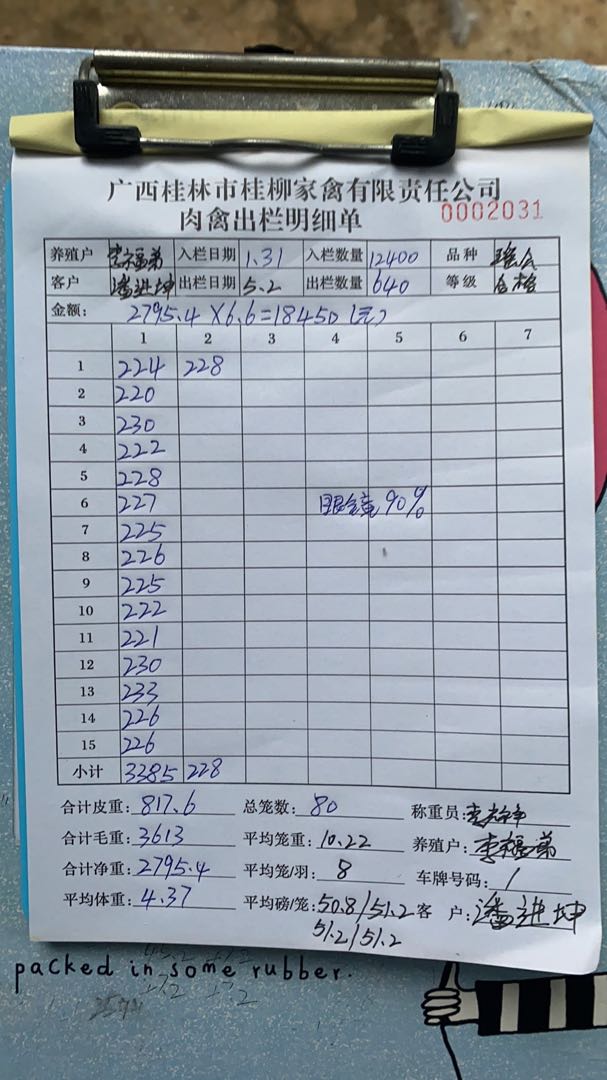 广西桂林市桂柳家禽有限责任公司
肉禽出栏明细单 0002031
养殖户 李福弟 入栏日期 1.31 入栏数量 12400 品种 瑶公
客户 潘进坤 出栏日期 5.2 出栏数量 640 等级 合格
金额: 2795.4×6.6=18450(元)
1 2 3 4 5 6 7
1 224 228
2 220
3 230
4 222
5 228
6 227 90%
7 225
8 226
9 225
10 222
11 221
12 230
13 233
14 226
15 226
小计 3385 228
合计皮重: 817.6 总笼数: 80 称重员:
合计毛重: 3613 平均笼重: 10.22 养殖户: 李福弟
合计净重: 2795.4 平均笼/羽: 8 车牌号码: /
平均体重: 4.37 平均磅/笼: 50.8/51.2 客 户: 潘进坤
51.2/51.2
packed in some rubber.